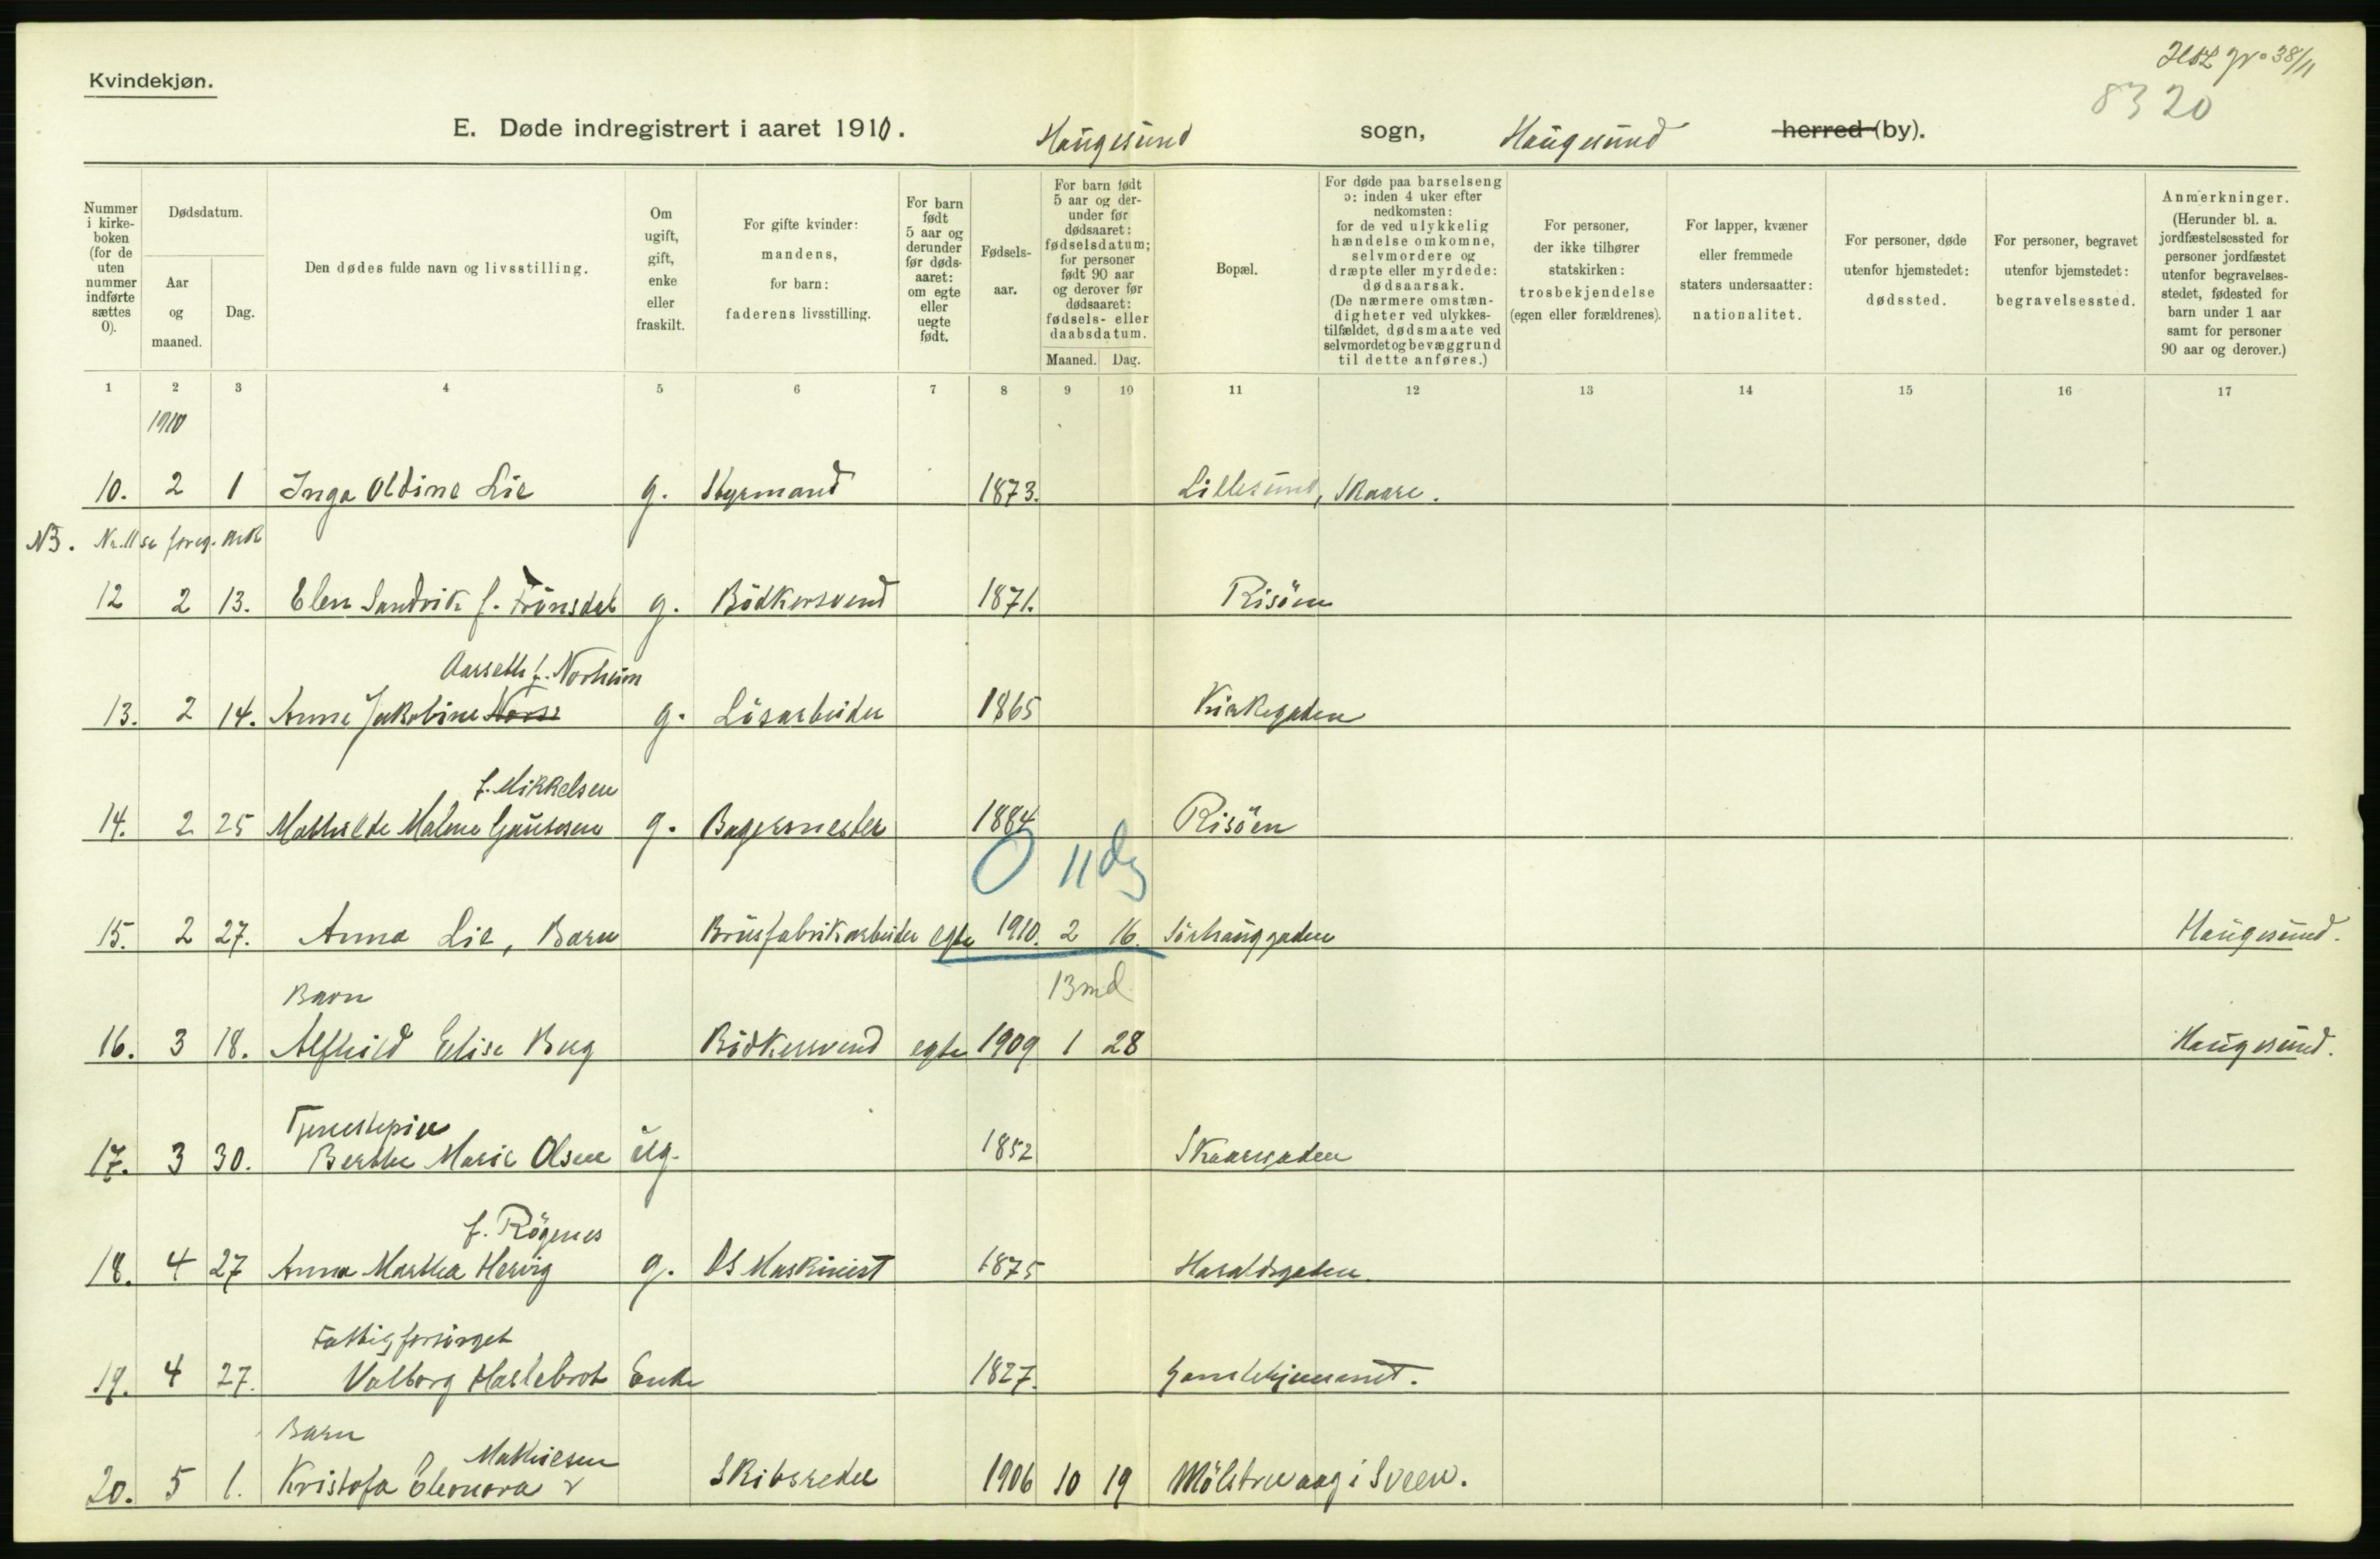 Kvindekjøn.
No 38/11
8320
E. Døde indregistrert i aaret 1910. Haugesund sogn, Haugesund herred (by).
Nummer i kirkeboken (for de uten nummer indførte sættes 0).
Dødsdatum.
Aar og maaned.
Dag.
Den dødes fulde navn og livsstilling.
Om ugift, gift, enke eller fraskilt.
For gifte kvinder: mandens, for barn: faderens livsstilling.
For barn født 5 aar og derunder før dødsaaret: om egte eller uegte født.
Fødselsaar.
For barn født 5 aar og derunder før dødsaaret: fødselsdatum; for personer født 90 aar og derover før dødsaaret: fødsels- eller daabsdatum.
Maaned. Dag.
Bopæl.
For døde paa barselseng ɔ: inden 4 uker efter nedkomsten: for de ved ulykkelig hændelse omkomne, selvmordere og dræpte eller myrdede: dødsaarsak. (De nærmere omstændigheter ved ulykkestilfældet, dødsmaate ved selvmordet og bevæggrund til dette anføres.)
For personer, der ikke tilhører statskirken: trosbekjendelse (egen eller forældrenes).
For lapper, kvæner eller fremmede staters undersaatter: nationalitet.
For personer, døde utenfor hjemstedet: dødssted.
For personer, begravet utenfor hjemstedet: begravelsessted.
Anmerkninger. (Herunder bl. a. jordfæstelsessted for personer jordfæstet utenfor begravelsesstedet, fødested for barn under 1 aar samt for personer 90 aar og derover.)
1 2 3 4 5 6 7 8 9 10 11 12 13 14 15 16 17
1910
10. 2 1 Inga Oldine Lie g. Styrmand 1873. Lillesund, Skaare.
NB. Nr. 11 se foreg. ark
12 2 13. Elen Sandvik f. Frönsdal g. Bödkersvend 1871. Risöen
Aarseth f. Norheim
13. 2 14. Anne Jakobine Norse g. Lösarbeider 1865 Kirkegaden
f. Mikkelsen
14. 2 25 Mathilde Malene Gausesen g. Bagermester 1884 Risöen
0 11 dg
15. 2 27. Anna Lie, Barn Brusfabrikarbeider egte 1910. 2 16. Sörhauggaden Haugesund.
Barn 13 md.
16. 3 18. Alfhild Elise Bug Bödkersvend egte 1909 1 28 Haugesund.
Tjenestepige
17. 3 30. Berthe Marie Olsen ug. 1852 Skaaregaden
f. Rögenes
18. 4 27 Anna Martha Hervig g. DS Maskinist 1875 Haraldsgaden.
Fattigforsörget
19. 4 27. Valborg Haslebrot Enke 1827. Gamlehjemmet.
Barn Mathiesen
20. 5 1. Kristofa Eleonora Skibsreder 1906 10 19 Mölstrevaag i Sveen.